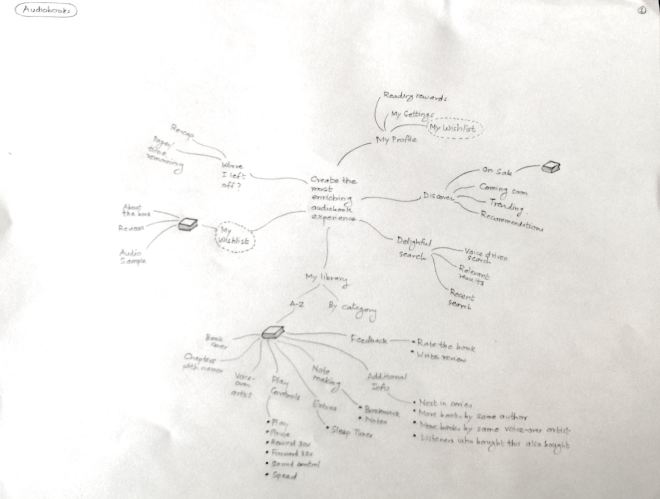 Audiobooks
1
Reading rewards
My Settings
My Wishlist
My Profile
Recap
Pages/
time
remaining
Where
I left
off?
Create the
most
enriching
audiobook
experience
Discover
On Sale
Coming soon
Trending
Recommendations
About
the book
Reviews
Audio
Sample
My
Wishlist
Delightful
search
Voice driven
search
Relevant
results
Recent
search
My library
A-Z
By category
Book
cover
Chapters
with names
Voice-
over
artist
Play
Controls
• Play
• Pause
• Rewind 30x
• Forward 30x
• Sound control
• Speed
Extras
• Sleep Timer
Note
making
• Bookmark
• Notes
Feedback
• Rate the book
• Write review
Additional
Info
• Next in series
• More books by same author
• More books by same voice-over artist
• Listeners who bought this also bought